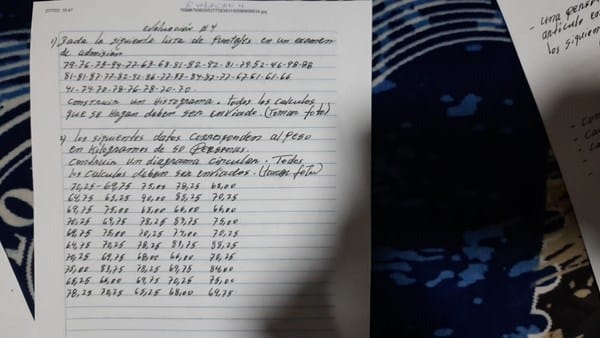 Evaluación #4
1) Dada la siguiente lista de Puntajes en un examen
de admisión
79-76-73-94-77-63-68-81-82-92-81-79-52-46-98-88
81-81-87-77-82-92-86-77-83-84-82-77-67-61-61-66
41-74-70-78-76-78-70-70.
Construir un Histograma. Todos los calculos
que se Hagan deben ser enviado. (Toman foto)
2) los siguientes datos corresponden al peso
en kilogramos de 50 Personas.
Construir un diagrama Circular. Todos
los calculos deben ser enviados. (toman foto)
70,25-69,75 75,00 78,25 68,00
64,75 65,25 90,00 88,25 70,75
69,75 75,00 68,00 66,00 66,00
70,25 69,75 78,25 83,75 75,00
69,75 75,00 70,25 74,00 70,25
64,75 70,25 78,25 83,75 88,25
70,25 69,75 68,00 66,00 78,25
75,00 83,75 78,25 69,75 84,00
65,25 66,00 69,75 70,25 75,00
78,25 70,25 65,25 68,00 69,75
una person
articulo en
los siguien